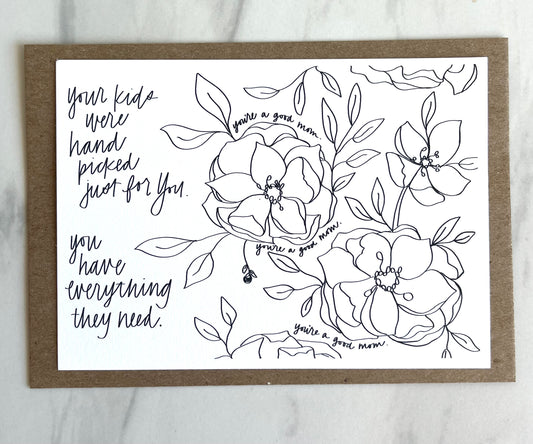 your kids
were
hand
picked
just for you.
you
have
everything
they need.
you're a good mom.
you're a good mom.
you're a good mom.